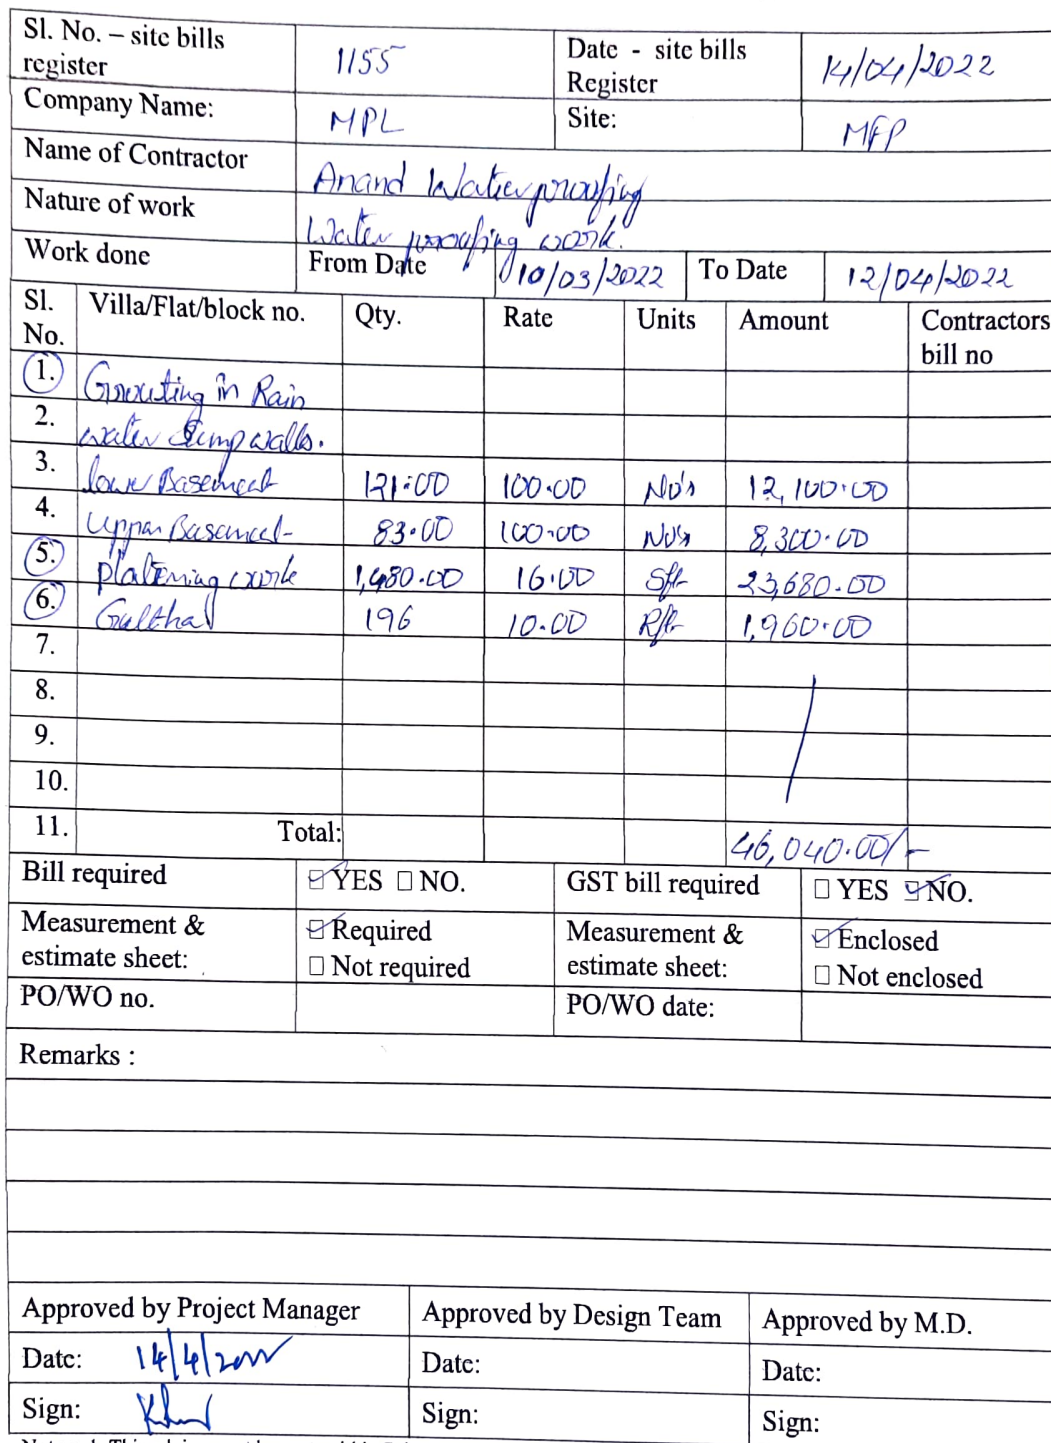 Sl. No. – site bills register 1155 Date - site bills Register 14/04/2022
Company Name: MPL Site: MFP
Name of Contractor Anand Waterproofing
Nature of work Water proofing work.
Work done From Date 10/03/2022 To Date 12/04/2022
Sl. No. Villa/Flat/block no. Qty. Rate Units Amount Contractors bill no
1. Grouting in Rain
2. water Sump walls.
3. lower Basement 121.00 100.00 No's 12,100.00
4. Upper Basement 83.00 100.00 No's 8,300.00
5. plastening work 1,480.00 16.00 Sft 23,680.00
6. Gultha 196 10.00 Rft 1,960.00
7.
8.
9.
10.
11. Total: 46,040.00/-
Bill required YES NO. GST bill required YES NO.
Measurement & estimate sheet: Required Not required Measurement & estimate sheet: Enclosed Not enclosed
PO/WO no. PO/WO date:
Remarks :
Approved by Project Manager Approved by Design Team Approved by M.D.
Date: 14/4/2022 Date: Date:
Sign: Sign: Sign: